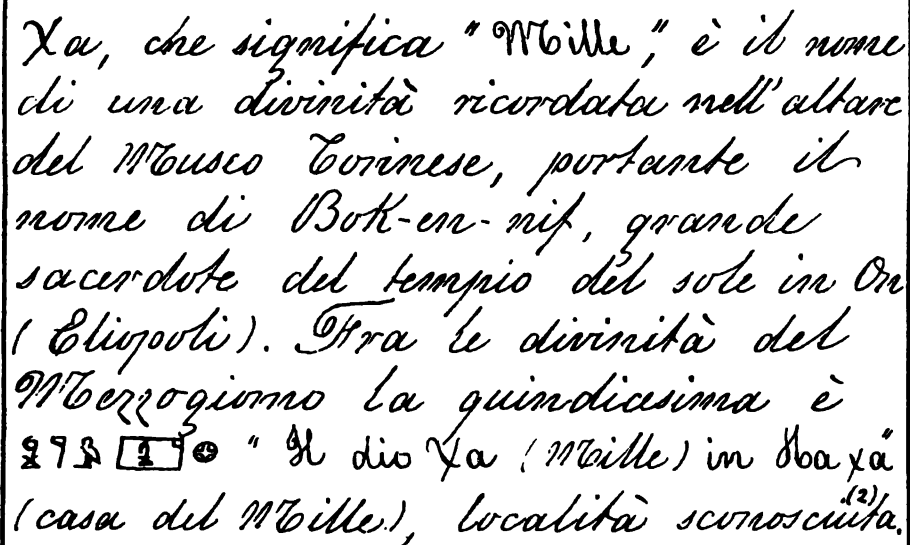 Χa, che significa "Mille", è il nome
di una divinità ricordata nell'altare
del Museo Torinese, portante il
nome di Bok-en-nif, grande
sacerdote del tempio del sole in On
(Eliopoli). Fra le divinità del
Mezzogiorno la quindicesima è
"Il dio Χa (Mille) in Ha χa"
(casa del Mille), località sconosciuta.(2)